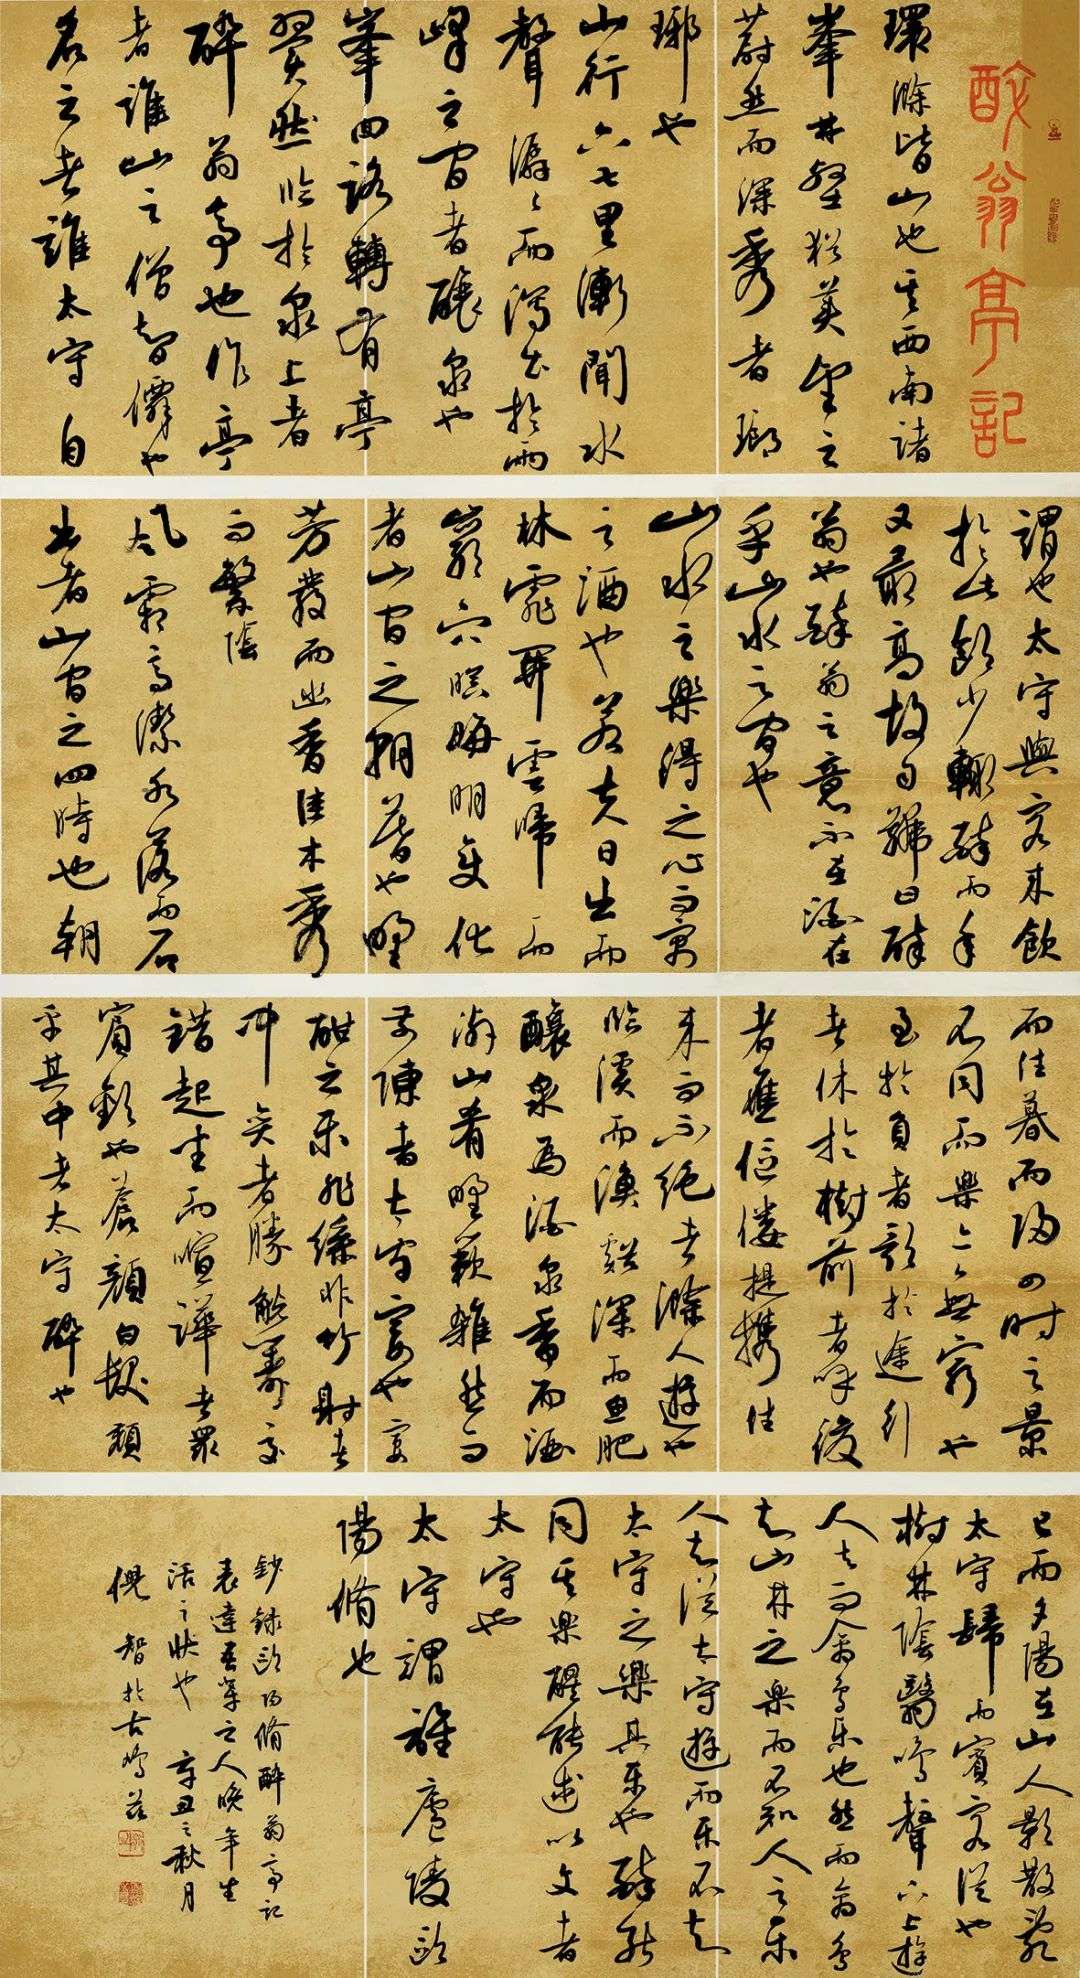 醉翁亭記
環滁皆山也其西南諸
峯林壑猶美望之
蔚然而深秀者瑯
琊也
山行六七里漸聞水
聲潺々而瀉出於兩
峰之間者釀泉也
峯回路轉有亭
翼然臨於泉上者
醉翁亭也作亭
者誰山之僧智僊也
名之者誰太守自
謂也太守與客來飲
於此飲少輒醉而年
又最高故自號曰醉
翁也醉翁之意不在酒在
乎山水之間也
山水之樂得之心而寓
之酒也若夫日出而
林霏開雲歸而
巖穴暝晦明變化
者山間之朝暮也野
芳發而幽香佳木秀
而繁陰
風霜高潔水落而石
出者山間之四時也朝
而往暮而歸四時之景
不同而樂亦無窮也
至於負者歌於途行
者休於樹前者呼後
者應傴僂提攜往
來而不絕者滁人遊也
臨溪而漁谿深而魚肥
釀泉為酒泉香而酒
洌山肴野蔌雜然而
前陳者太守宴也宴
酣之樂非絲非竹射者
中弈者勝觥籌交
錯起坐而喧譁者眾
賓歡也蒼顏白髮頹
乎其中者太守醉也
已而夕陽在山人影散亂
太守歸而賓客從也
樹林陰翳鳴聲上下遊
人去而禽鳥樂也然而禽鳥
知山林之樂而不知人之樂
人知從太守遊而樂不知
太守之樂其樂也醉能
同其樂醒能述以文者
太守也
太守謂誰廬陵歐
陽脩也
鈔錄歐陽脩醉翁亭記
表達吾輩之人晚年生
活之狀也 辛丑之秋月
倪智於古鳩茲